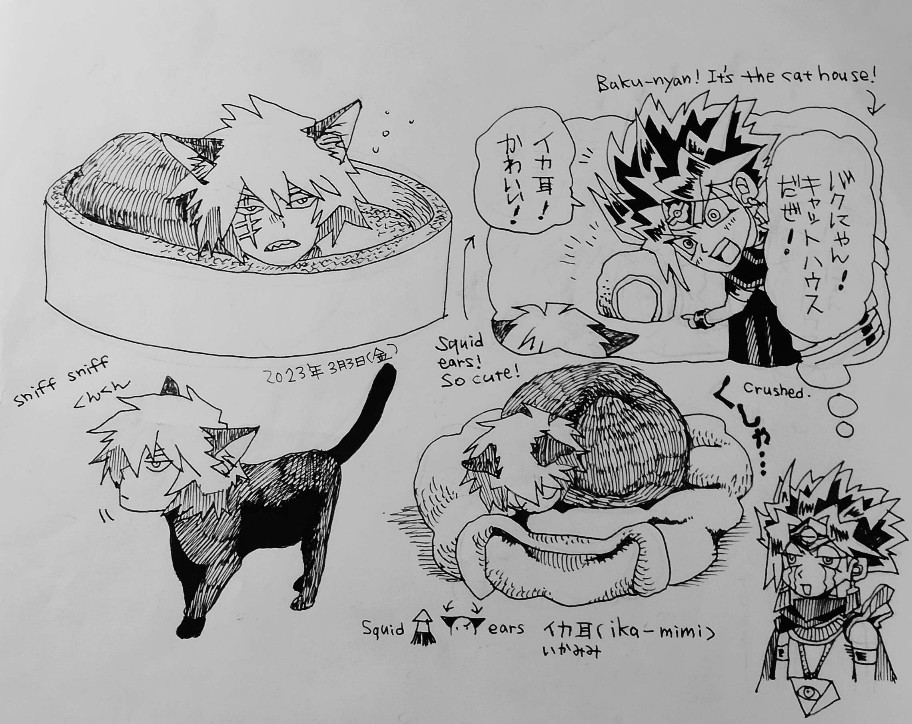 Baku-nyan! It's the cat house!
バクにゃん!
キャットハウス
だぜ!
イカ耳!
かわいい!
Squid
ears!
So cute!
2023年3月3日(金)
sniff sniff
くんくん
くしゃ…
Crushed.
Squid ears イカ耳(ika-mimi)
いかみみ